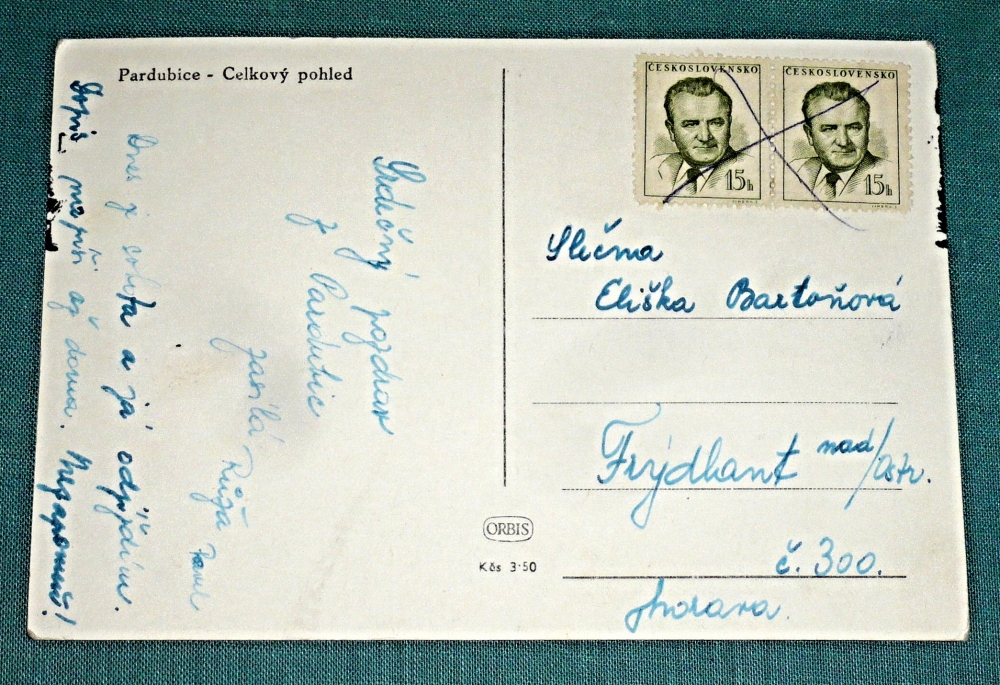 Pardubice - Celkový pohled
ČESKOSLOVENSKO
15h
ČESKOSLOVENSKO
15h
Srdečný pozdrav
z Pardubic
zasílá Růža
Dnes je sobota a já odjíždím.
Dopiš mi až domů. Nezapomeň!
Slečna
Eliška Bartoňová
Frýdlant nad/Ostr.
č. 300.
Morava.
ORBIS
Kčs 3·50